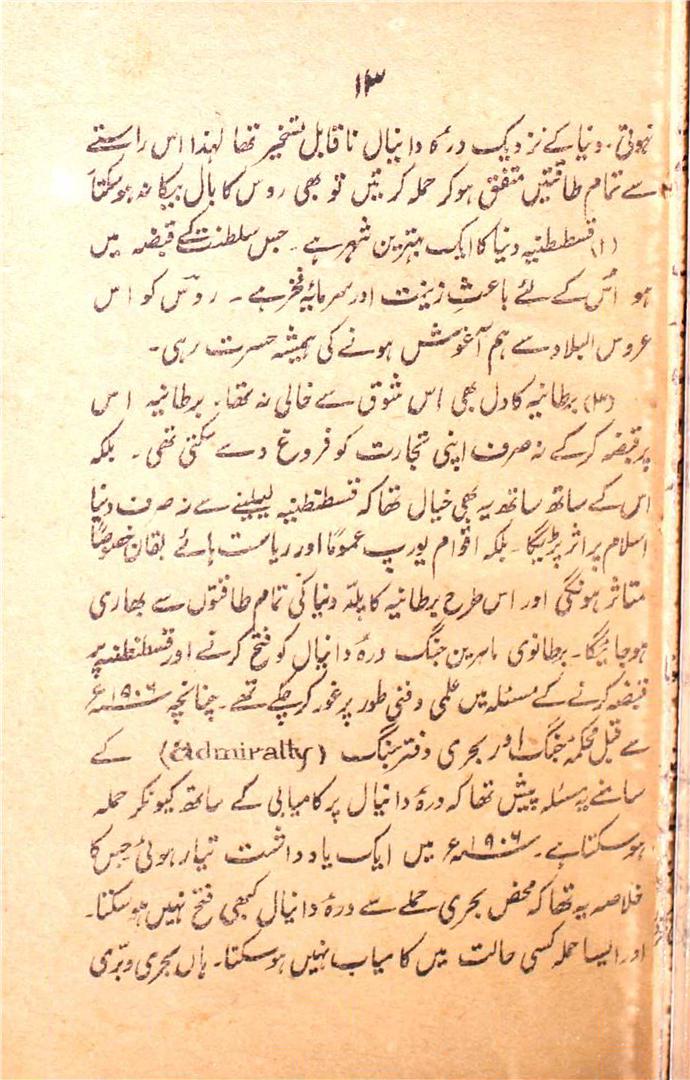 ۱۳
نہوتی۔ دنیا کے نزدیک درۂ دانیال ناقابل تسخیر تھا لہذا اس راستے
سے تمام طاقتیں متفق ہوکر حملہ کرتیں تو بھی روس کا بال بیکا نہ ہوسکتا
(۱) قسطنطنیہ دنیا کا ایک بہترین شہر ہے۔ جس سلطنت کے قبضہ میں
ہو اُس کے لئے باعثِ زینت اور سرمایۂ فخر ہے۔ روس کو اس
عروس البلاد سے ہم آغوش ہونے کی ہمیشہ حسرت رہی۔
(۳) برطانیہ کا دل بھی اس شوق سے خالی نہ تھا۔ برطانیہ اس
پر قبضہ کرکے نہ صرف اپنی تجارت کو فروغ دے سکتی تھی۔ بلکہ
اس کے ساتھ ساتھ یہ بھی خیال تھا کہ قسطنطنیہ لیلینے سے نہ صرف دنیا
اسلام پر اثر پڑیگا۔ بلکہ اقوام یورپ عموماً اور ریاست ہائے بلقان خصوصاً
متاثر ہونگی اور اس طرح برطانیہ کا پلہ دنیا کی تمام طاقتوں سے بھاری
ہوجائیگا۔ برطانوی ماہرین جنگ درۂ دانیال کو فتح کرنے اور قسطنطنیہ پر
قبضہ کرنے کے مسئلہ میں علمی و فنی طور پر غور کرچکے تھے۔ چنانچہ ۱۹۰۶ء
سے قبل محکمۂ جنگ اور بحری دفتر جنگ (Admiralty) کے
سامنے یہ مسئلہ پیش تھا کہ درۂ دانیال پر کامیابی کے ساتھ کیونکر حملہ
ہوسکتا ہے۔ ۱۹۰۶ء میں ایک یادداشت تیار ہوئی جس کا
خلاصہ یہ تھا کہ محض بحری حملے سے درۂ دانیال کبھی فتح نہیں ہوسکتا۔
اور ایسا حملہ کسی حالت میں کامیاب نہیں ہوسکتا۔ ہاں بحری و برّی